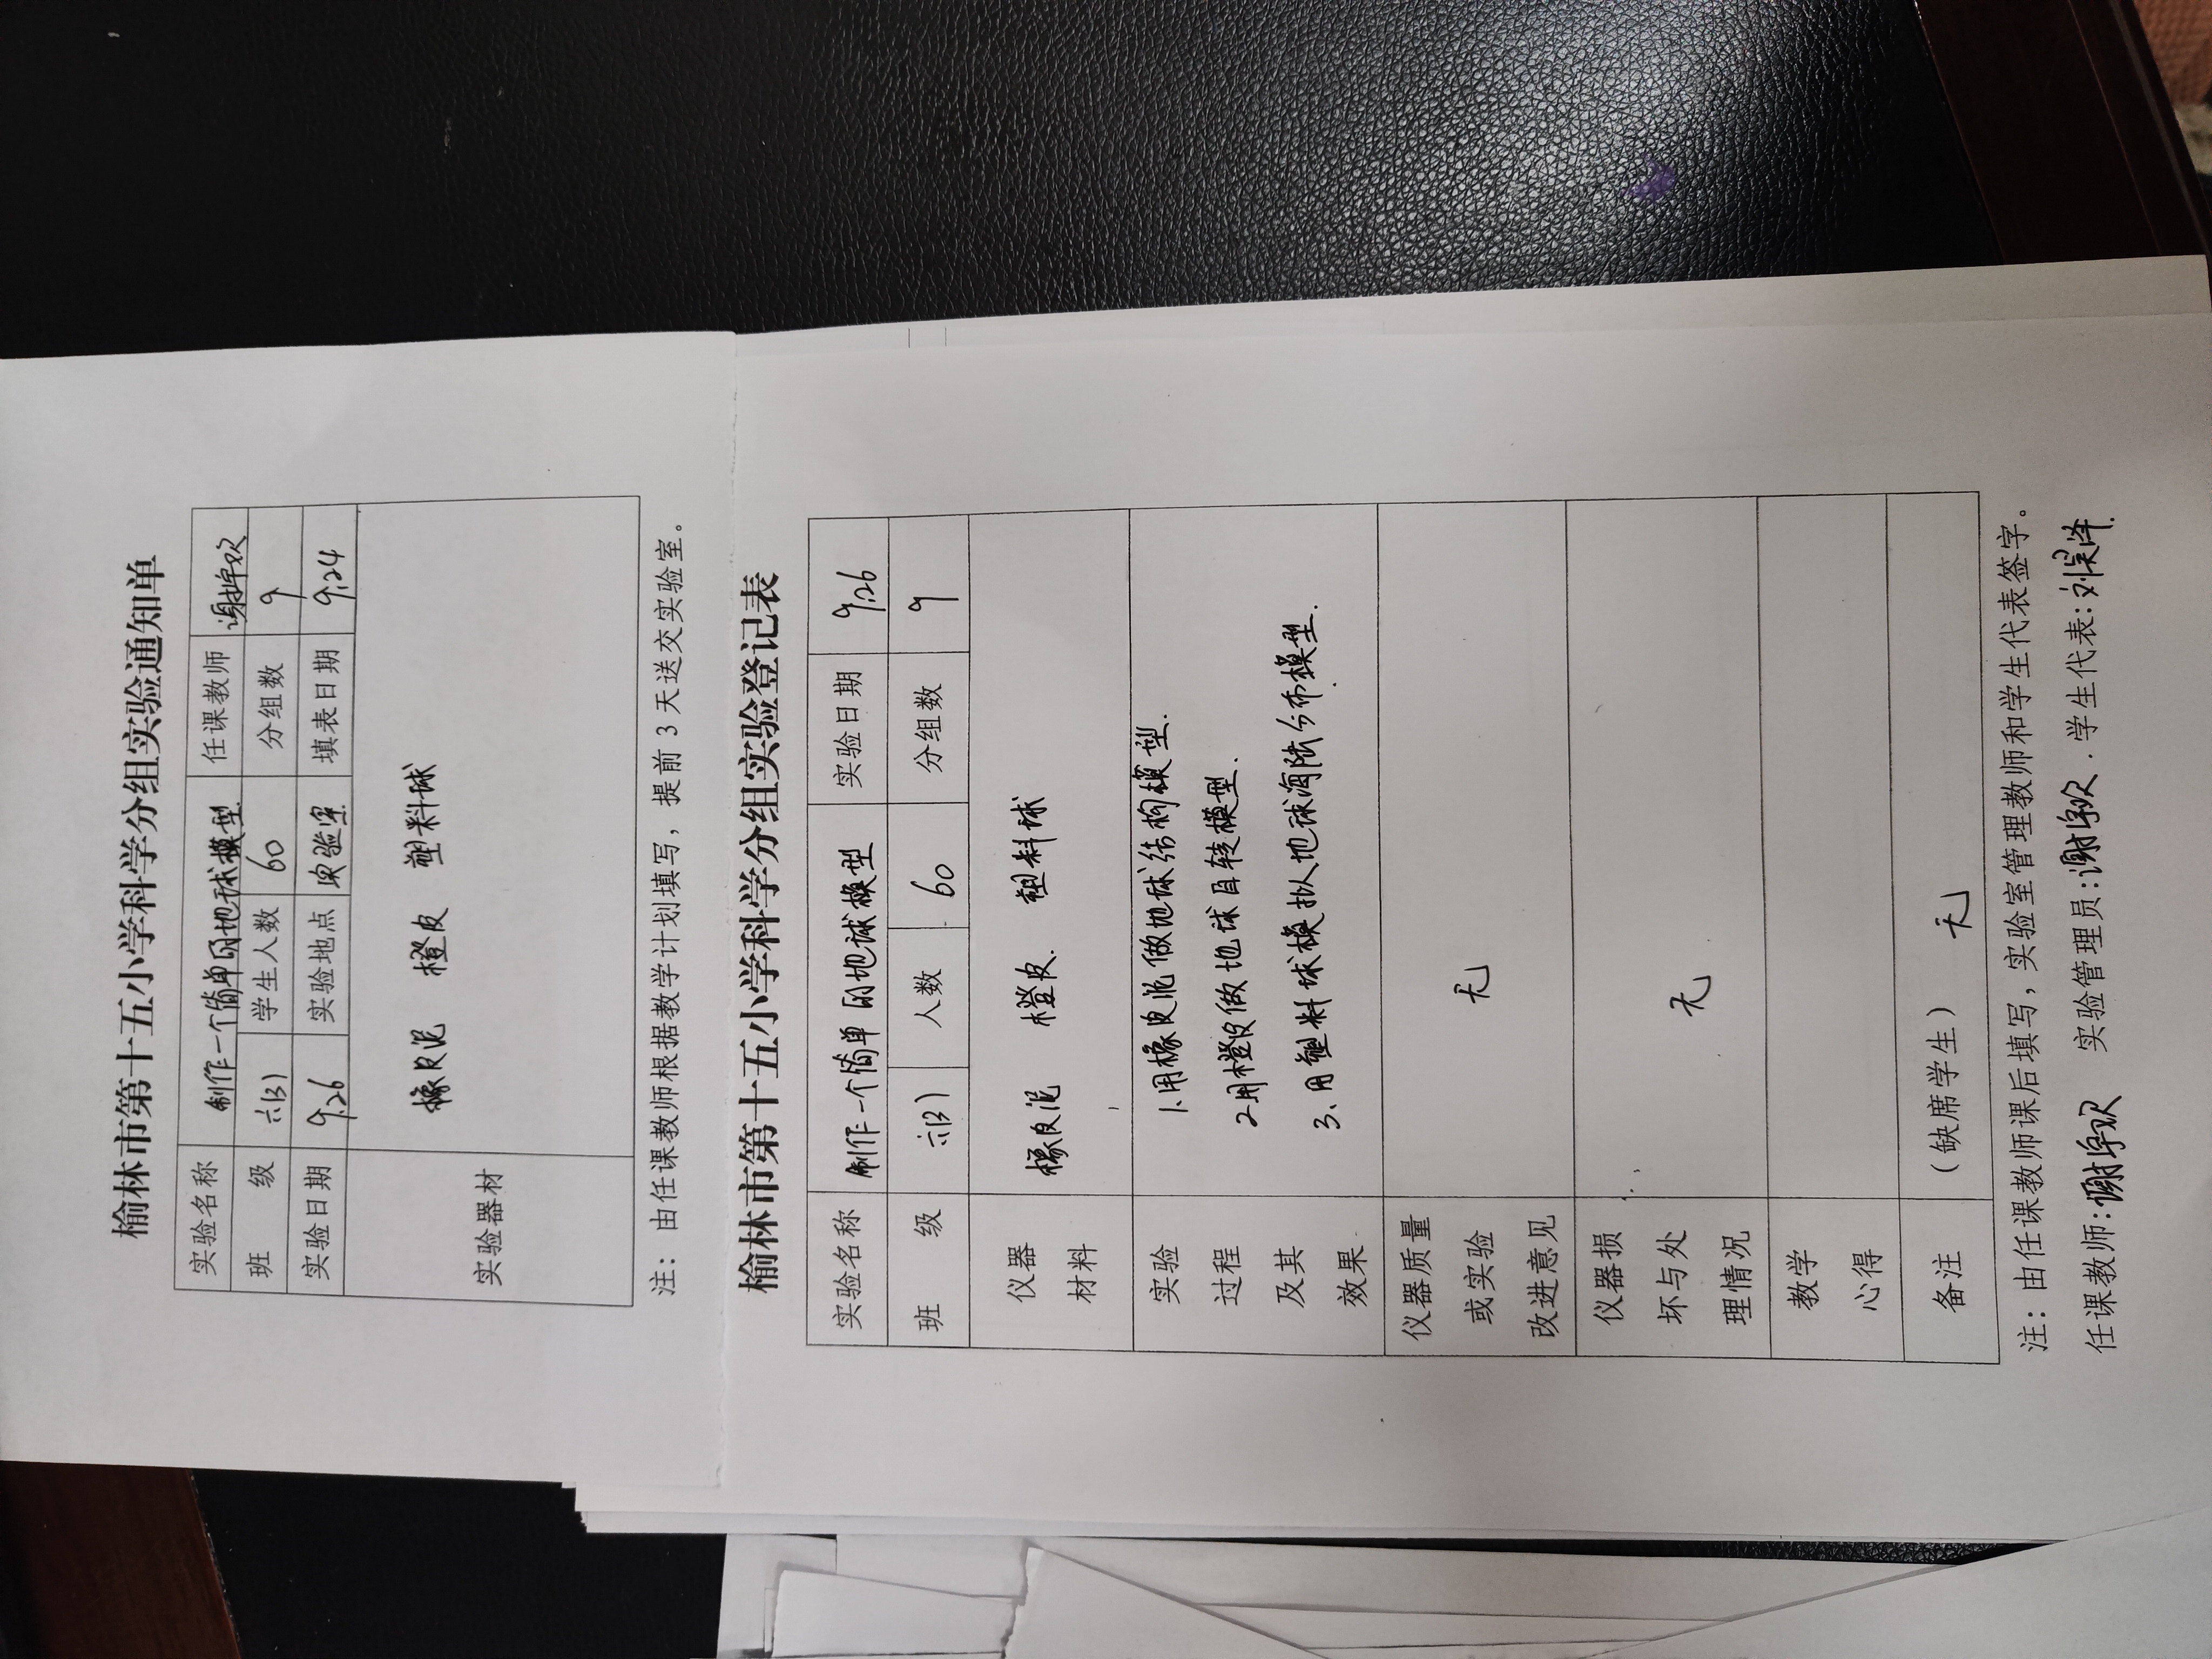 榆林市第十五小学科学分组实验通知单
实验名称 制作一个简单的地球模型 任课教师
班 级 六(3) 学生人数 60 分组数 9
实验日期 9.26 实验地点 实验室 填表日期 9.24
实验器材 橡皮泥 橙皮 塑料球
注：由任课教师根据教学计划填写，提前3天送交实验室。
榆林市第十五小学科学分组实验登记表
实验名称 制作一个简单的地球模型 实验日期 9.26
班 级 六(3) 人数 60 分组数 9
仪器材料 橡皮泥 橙皮 塑料球
实验过程及其效果
1.用橡皮泥做地球结构模型.
2.用橙皮做地球自转模型.
3.用塑料球模拟地球海陆分布模型.
仪器质量或实验改进意见 无
仪器损坏与处理情况 无
教学心得
备注 （缺席学生） 无
注：由任课教师课后填写，实验室管理教师和学生代表签字。
任课教师: 实验管理员: 学生代表: